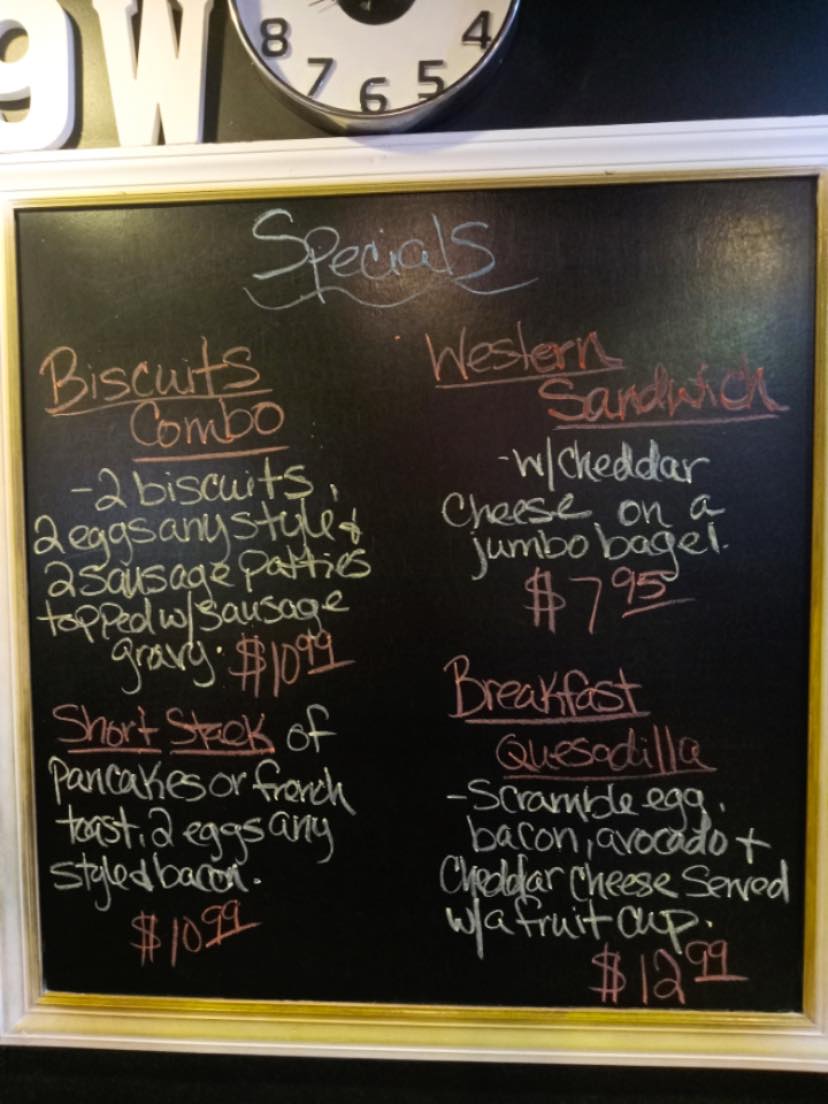 9W
8 7 6 5 4
Specials
Biscuits
Combo
-2 biscuits,
2 eggs any style &
2 sausage patties
topped w/sausage
gravy. $10.99
Short Stack of
pancakes or french
toast, 2 eggs any
style & bacon.
$10.99
Western
Sandwich
-w/cheddar
cheese on a
jumbo bagel.
$7.95
Breakfast
Quesadilla
-Scramble egg,
bacon, avocado +
Cheddar cheese served
w/a fruit cup.
$12.99